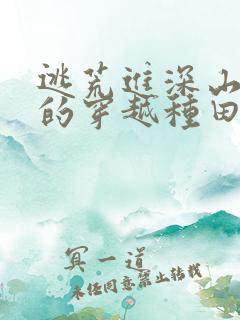 逃荒進深山
的穿越種田
冥一道
未经同意禁止转载